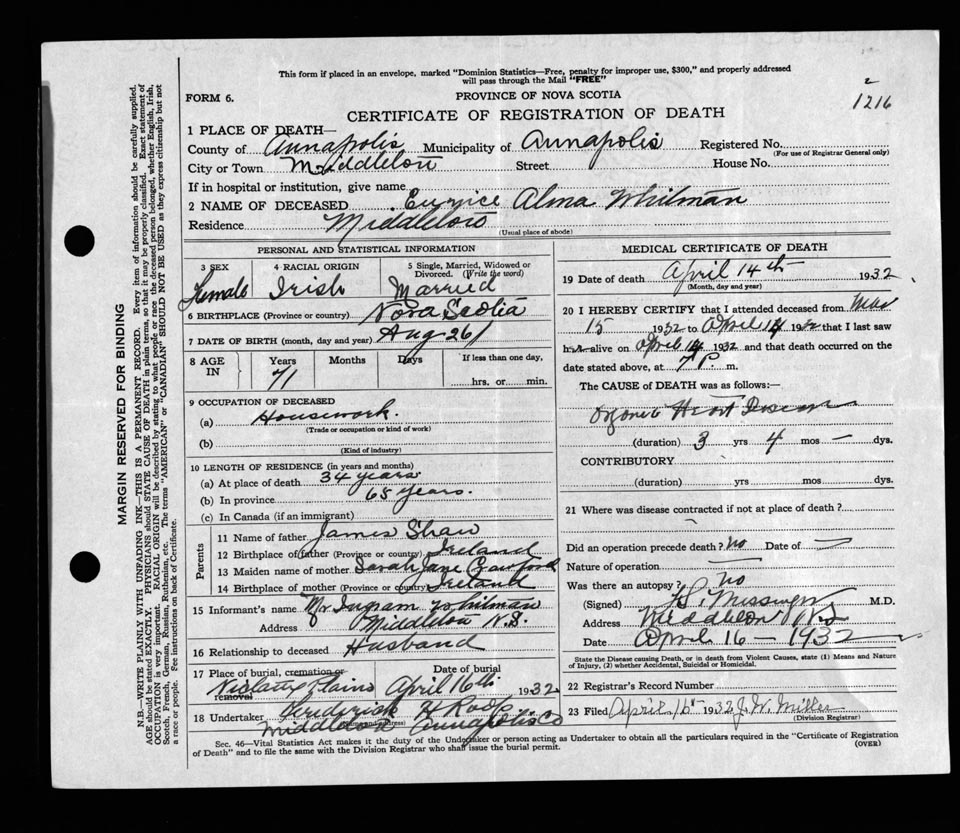 This form if placed in an envelope, marked "Dominion Statistics—Free, penalty for improper use, $300," and properly addressed
will pass through the Mail "FREE"
2
1216
FORM 6.
PROVINCE OF NOVA SCOTIA
CERTIFICATE OF REGISTRATION OF DEATH
1 PLACE OF DEATH—
County of Annapolis Municipality of Annapolis Registered No.
(For use of Registrar General only)
City or Town Middleton Street House No.
If in hospital or institution, give name
2 NAME OF DECEASED Eunice Alma Whitman
Residence Middleton
(Usual place of abode)
PERSONAL AND STATISTICAL INFORMATION
3 SEX 4 RACIAL ORIGIN 5 Single, Married, Widowed or Divorced. (Write the word)
Female Irish Married
6 BIRTHPLACE (Province or country) Nova Scotia
7 DATE OF BIRTH (month, day and year) Aug 26
8 AGE IN Years Months Days If less than one day,
71 hrs. or min.
9 OCCUPATION OF DECEASED
(a) Housework.
(Trade or occupation or kind of work)
(b)
(Kind of industry)
10 LENGTH OF RESIDENCE (in years and months)
(a) At place of death 34 years
(b) In province 68 years.
(c) In Canada (if an immigrant)
Parents
11 Name of father James Shaw
12 Birthplace of father (Province or country) Ireland
13 Maiden name of mother Sarah Jane Crawford
14 Birthplace of mother (Province or country) Ireland
15 Informant's name Mr Ingram Whitman
Address Middleton N.S.
16 Relationship to deceased Husband
17 Place of burial, cremation or removal Date of burial
Plains April 16th 1932
18 Undertaker
(Name and address)
Middleton Annapolis Co
MEDICAL CERTIFICATE OF DEATH
19 Date of death April 14th 1932
(Month, day and year)
20 I HEREBY CERTIFY that I attended deceased from
15 1932 to April 14 1932 that I last saw
her alive on April 14 1932 and that death occurred on the
date stated above, at 7 P. m.
The CAUSE OF DEATH was as follows:—
Organic Heart Disease
(duration) 3 yrs 4 mos — dys.
CONTRIBUTORY
(duration) yrs mos dys.
21 Where was disease contracted if not at place of death?
Did an operation precede death? no Date of —
Nature of operation —
Was there an autopsy? no
(Signed) Messinger M.D.
Address Middleton N.S.
Date April 16 — 1932
State the Disease causing Death, or in death from Violent Causes, state (1) Means and
Nature of Injury, (2) whether Accidental, Suicidal or Homicidal.
22 Registrar's Record Number
23 Filed April 16 1932 J. W. Miller
(Division Registrar)
Sec. 46—Vital Statistics Act makes it the duty of the Undertaker or person acting as Undertaker to obtain all the particulars required in the "Certificate of Registration
of Death" and to file the same with the Division Registrar who shall issue the burial permit.
(OVER)
MARGIN RESERVED FOR BINDING
N.B.—WRITE PLAINLY WITH UNFADING INK—THIS IS A PERMANENT RECORD. Every item of information should be carefully supplied.
AGE should be stated EXACTLY. PHYSICIANS should STATE CAUSE OF DEATH in plain terms, so that it may be properly classified. Exact statement of
OCCUPATION is very important. RACIAL ORIGIN will be described by stating to what people or race the deceased person belonged, whether English, Irish,
Scotch, French, German, Russian, Ruthenian, etc. The terms "AMERICAN" or "CANADIAN" SHOULD NOT BE USED as they express citizenship but not
a race or people. See instructions on back of Certificate.